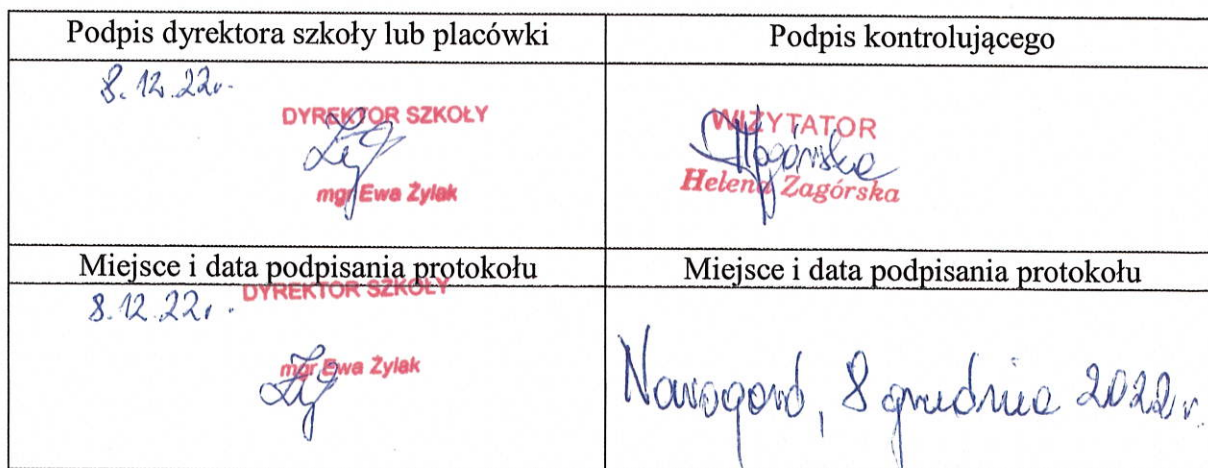 Podpis dyrektora szkoły lub placówki
Podpis kontrolującego
8.12.22r.
DYREKTOR SZKOŁY
mgr Ewa Żylak
WIZYTATOR
Helena Zagórska
Miejsce i data podpisania protokołu
Miejsce i data podpisania protokołu
8.12.22r.
DYREKTOR SZKOŁY
mgr Ewa Żylak
Nowogard, 8 grudnia 2022 r.